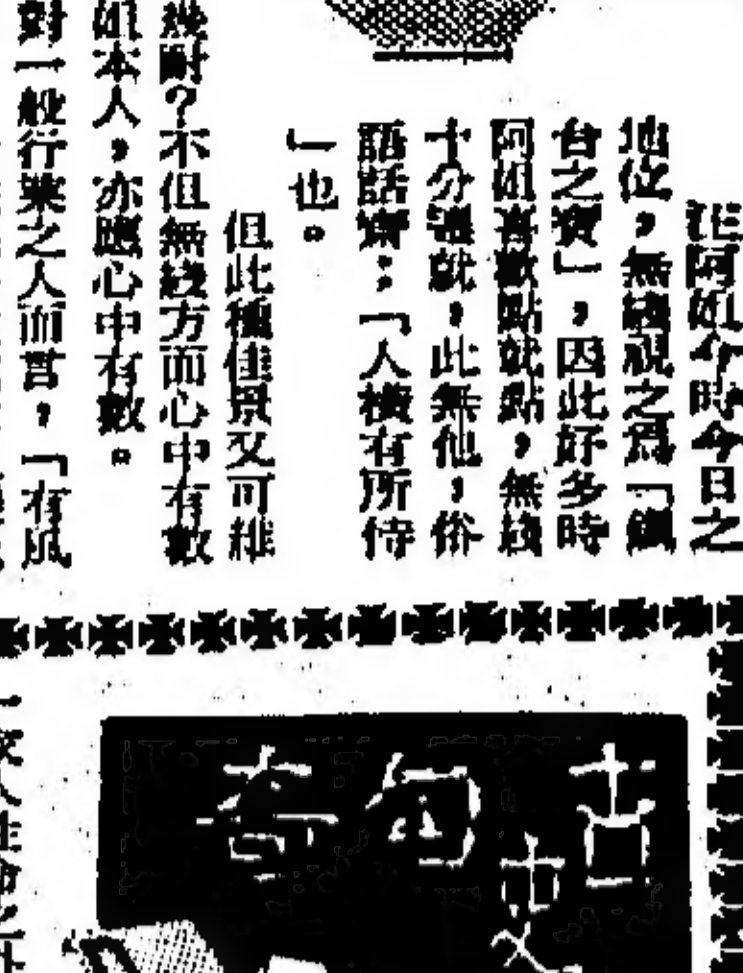 在阿姐今時今日之
地位，無綫視之爲「鎮
台之寶」，因此好多時
阿姐喜歡點就點，無綫
十分遷就，此無他，俗
語話齋：「人橫有所恃
」也。
但此種佳景又可維
幾耐？不但無綫方面心中有數
姐本人，亦應心中有數。
對一般行業之人而言，「有風
一家人生命之外
古
包
奇